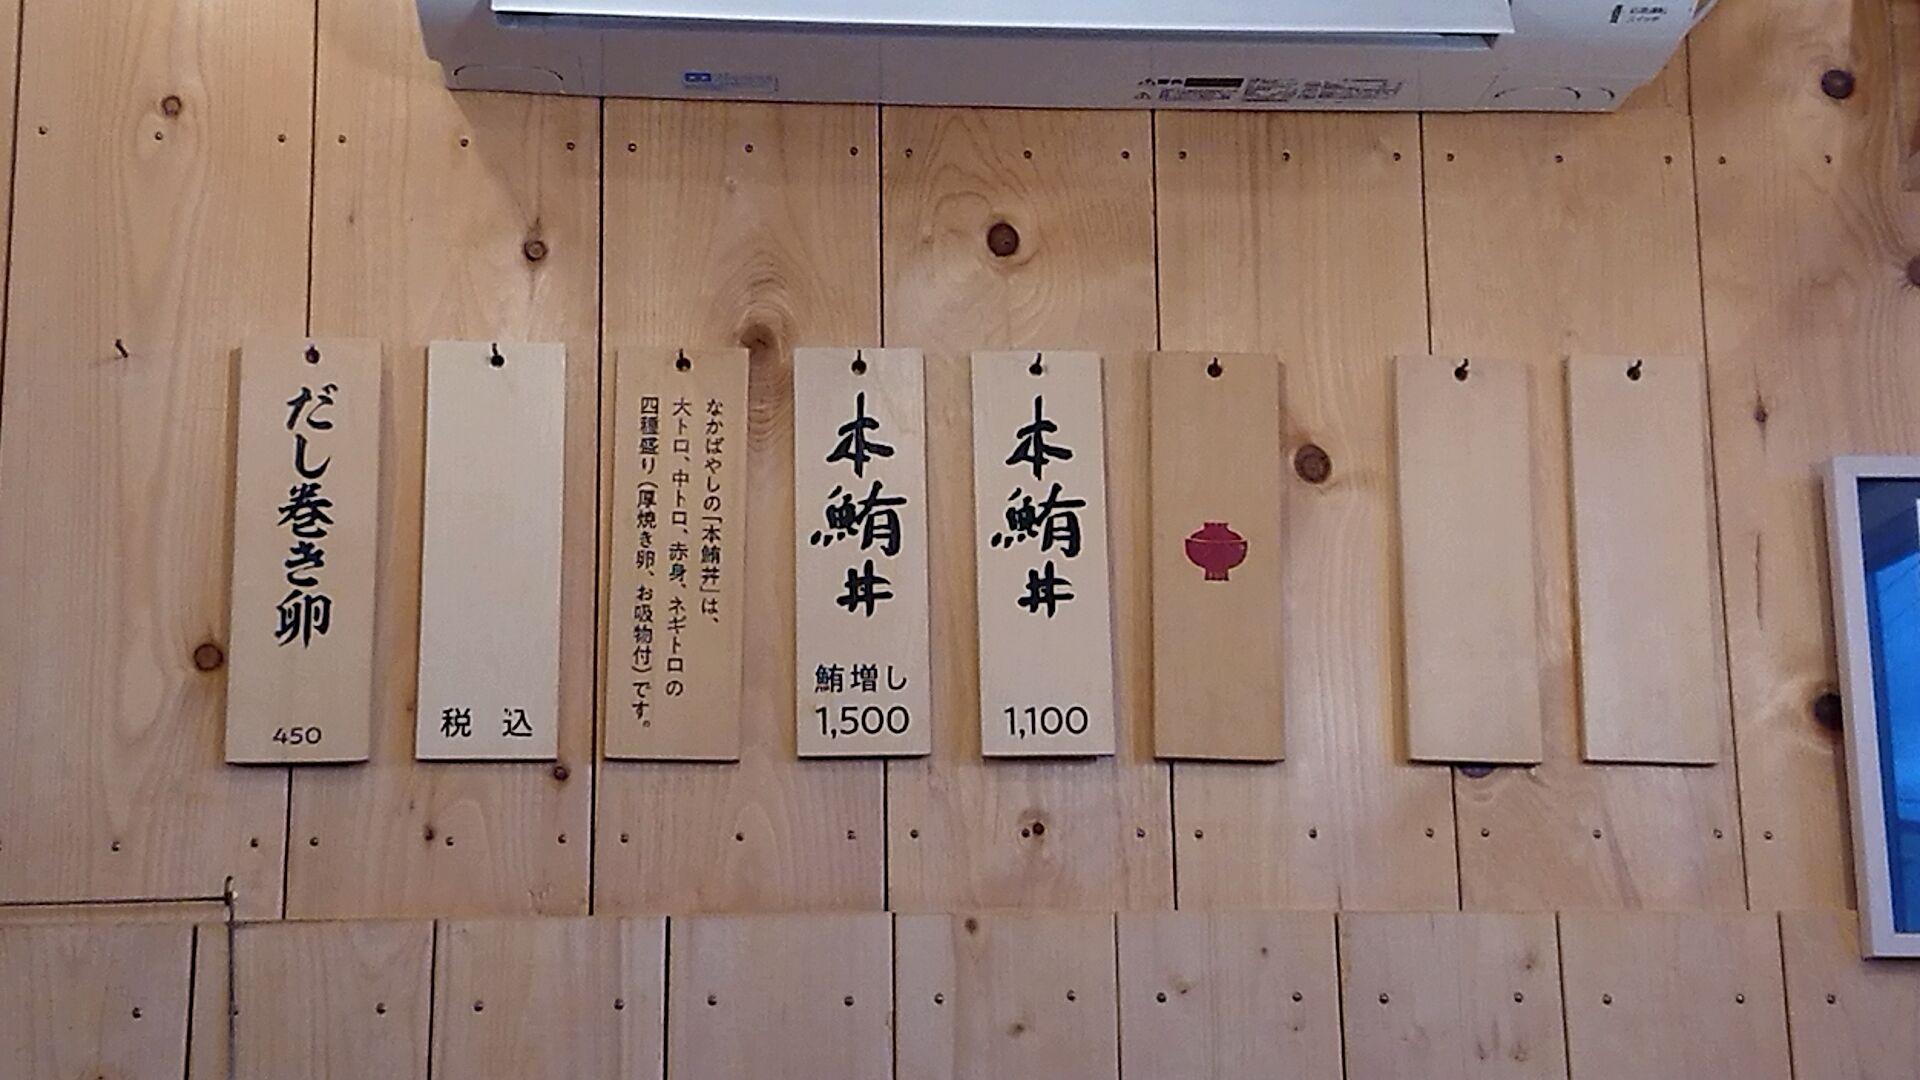 本鮪丼
1,100
本鮪丼
鮪増し
1,500
なかばやしの「本鮪丼」は、
大トロ、中トロ、赤身、ネギトロの
四種盛り(厚焼き卵、お吸物付)です。
税 込
だし巻き卵
450